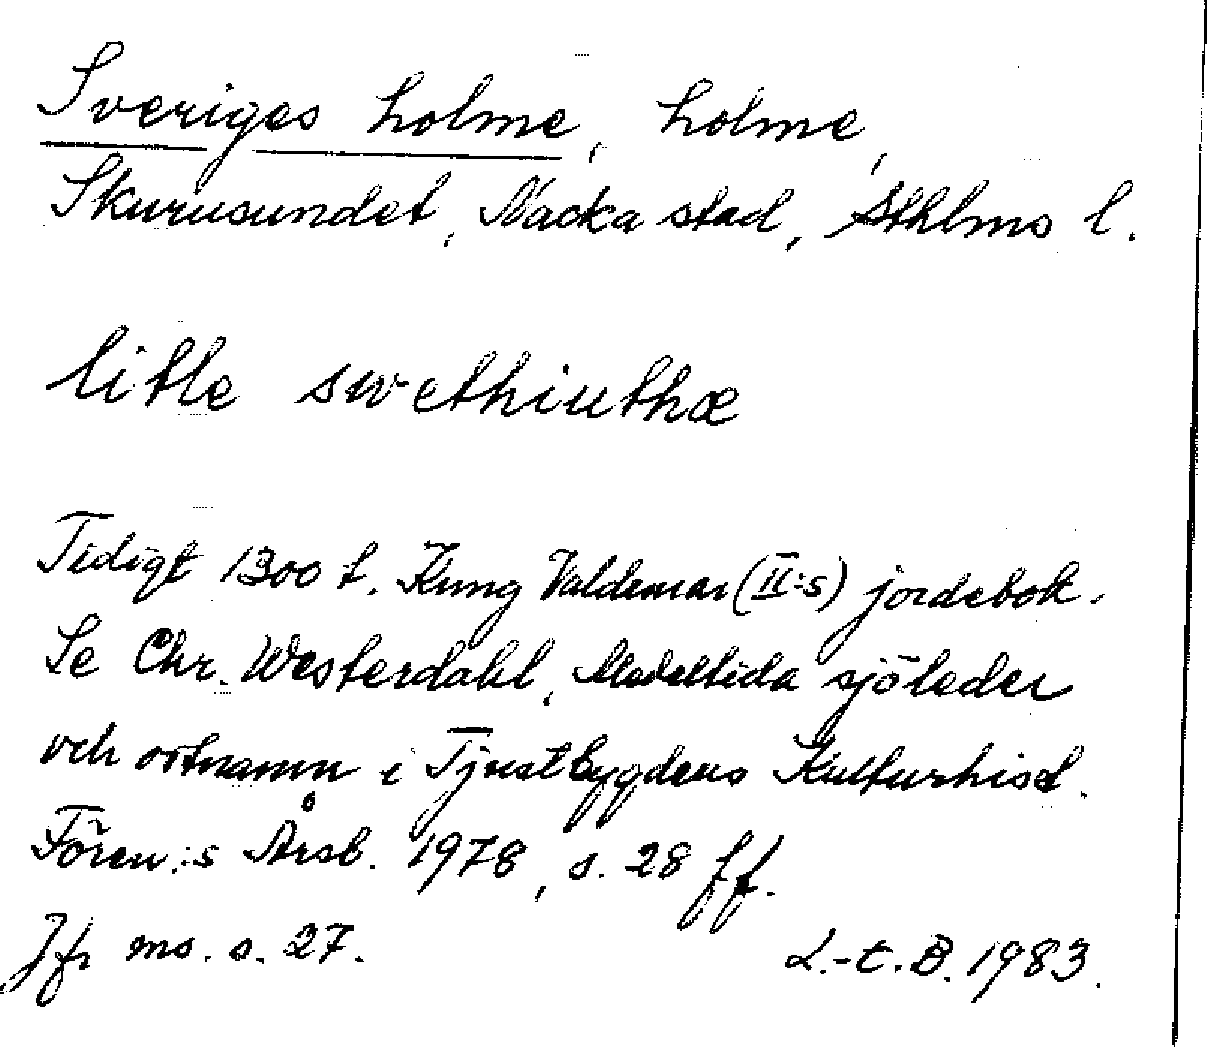 Sveriges holme, holme,
Skurusundet, Nacka stad, Sthlms l.
litle swethiuthæ
Tidigt 1300 t. Kung Valdemar (II:s) jordebok.
Se Chr. Westerdahl, Medeltida sjöleder
och ortnamn i Tjustbygdens Kulturhist.
Fören:s Årsb. 1978, s. 28 ff.
Jfr ms. s. 27.
L.-t. B. 1983.